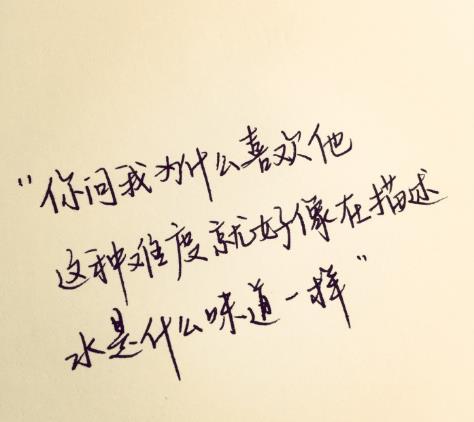 “你问我为什么喜欢他
这种难度就好像在描述
水是什么味道一样”